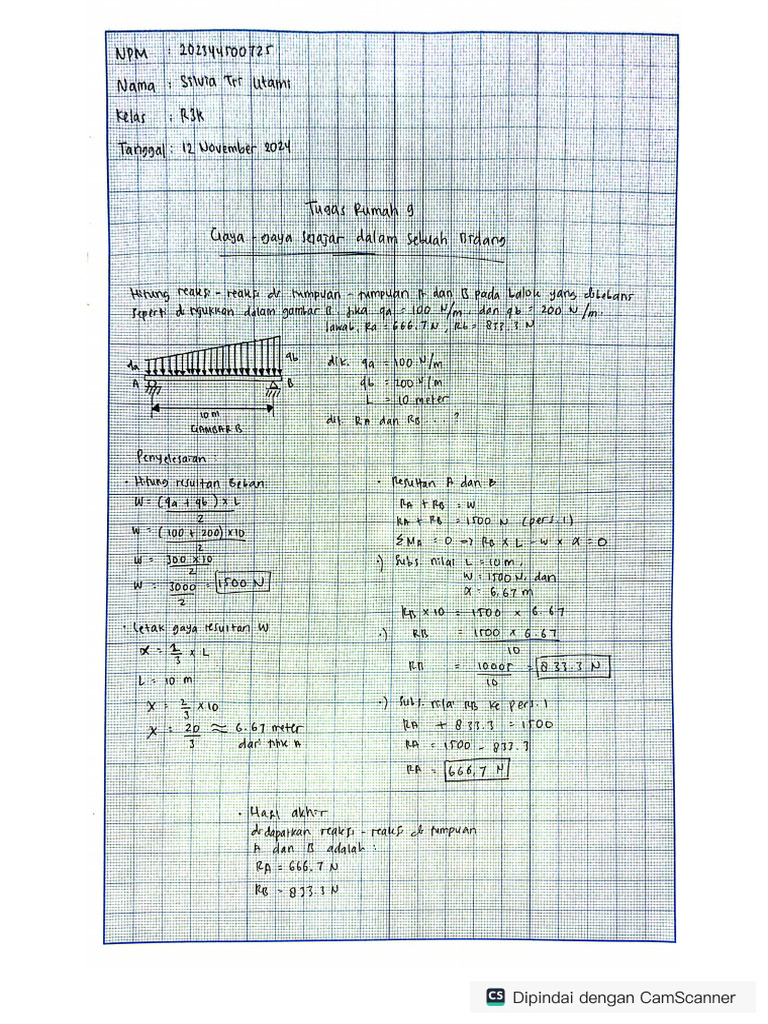 NPM : 202344500725
Nama : Silvia Tri Utami
Kelas : R3K
Tanggal : 12 November 2024
Tugas Rumah 9
Gaya - gaya sejajar dalam sebuah Bidang
Hitung reaksi - reaksi di tumpuan - tumpuan A dan B pada balok yang dibebani
seperti di tnjukkan dalam gambar B. Jika qa = 100 N/m, dan qb = 200 N/m.
Jawab, Ra = 666.7 N, Rb = 833.3 N
qa
qb
A
B
10 m
GAMBAR B
dik. qa = 100 N/m
qb = 200 N/m
L = 10 meter
dit. RA dan RB . . . ?
Penyelesaian :
• Hitung resultan Beban
W = (qa + qb) x L
2
W = (100 + 200) x 10
2
W = 300 x 10
2
W = 3000 = 1500 N
2
• Letak gaya resultan W
x = 2 x L
3
L = 10 m
x = 2 x 10
3
x = 20 ≈ 6.67 meter
3 dari titik A
• Resultan A dan B
RA + RB = W
RA + RB = 1500 N (pers. 1)
ΣMA = 0 => RB x L - W x x = 0
•) Subs. nilai L = 10 m,
W = 1500 N, dan
x = 6,67 m
RB x 10 = 1500 x 6.67
•) RB = 1500 x 6.67
10
RB = 10005 = 833.3 N
10
•) Subs. nilai RB ke pers. 1
RA + 833.3 = 1500
RA = 1500 - 833.3
RA = 666,7 N
• Hasil akhir
didapatkan reaksi - reaksi di tumpuan
A dan B adalah :
RA = 666,7 N
RB = 833.3 N
CS Dipindai dengan CamScanner